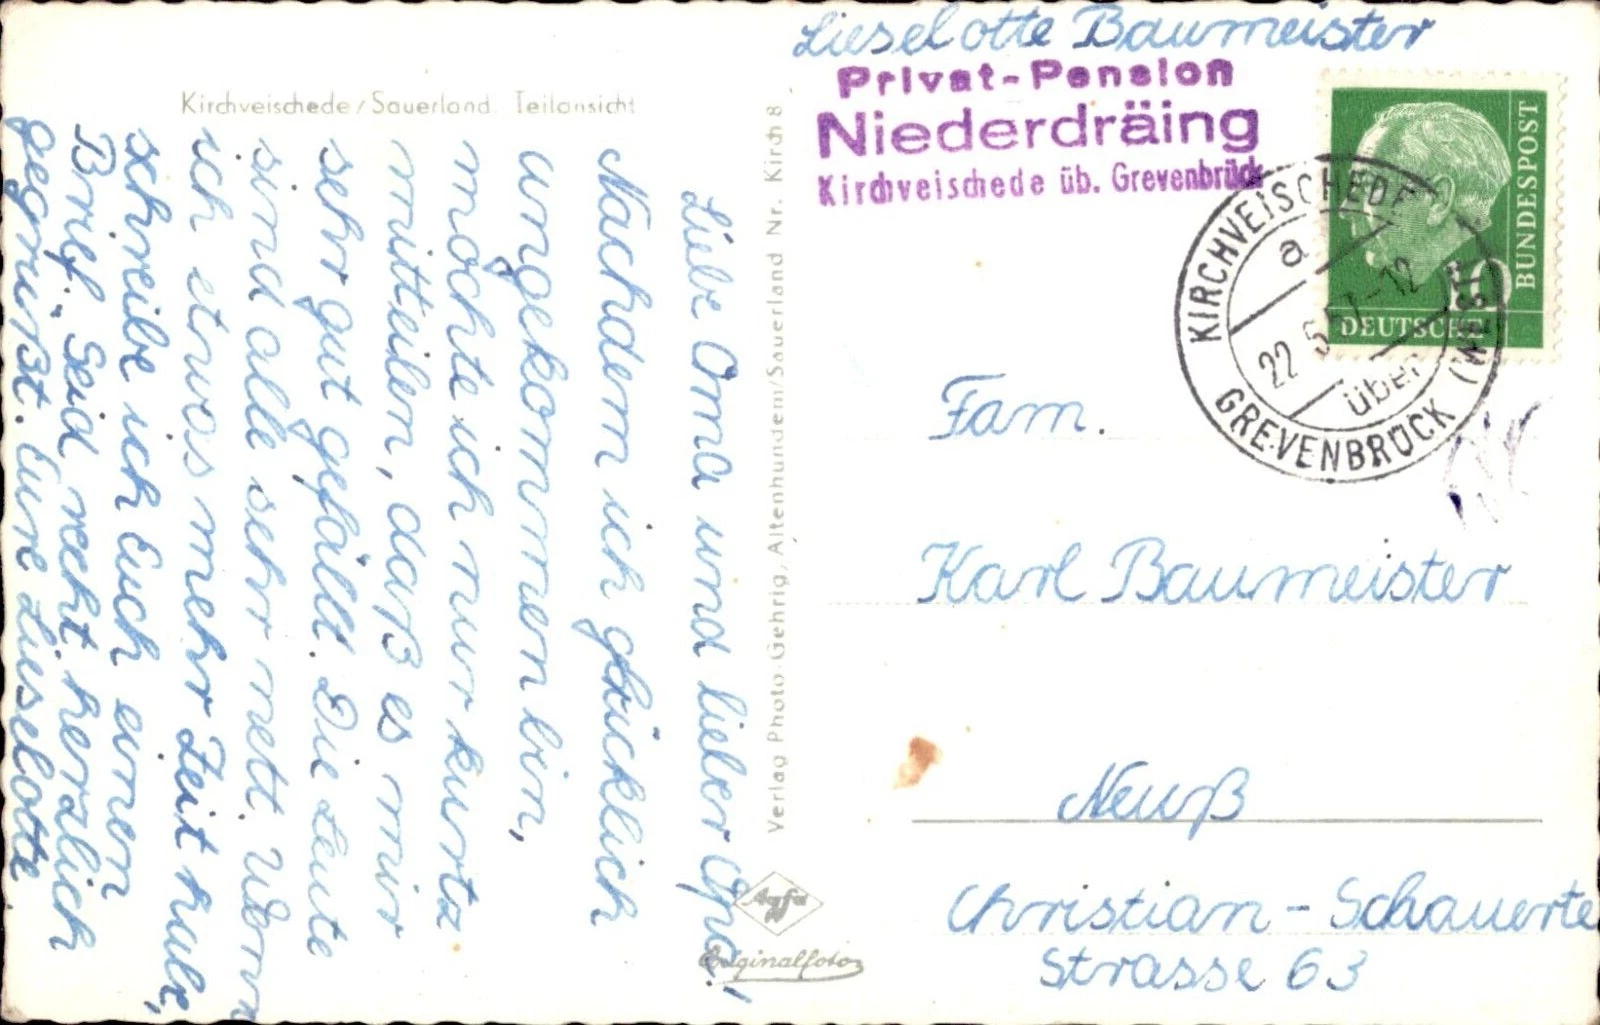 Kirchveischede/Sauerland. Teilansicht
Liebe Oma und lieber Opa!
Nachdem ich glücklich
angekommen bin,
möchte ich nur kurtz
mitteilen, daß es mir
sehr gut gefällt. Die Leute
sind alle sehr nett. Wenn
ich etwas mehr Zeit habe,
schreibe ich Euch einen
Brief. Seid recht herzlich
gegrüßt. Eure Lieselotte
Verlag Photo-Gehrig, Altenhundem/Sauerland Nr. Kirch 8
Agfa
Originalfoto
Lieselotte Baumeister
Privat-Pension
Niederdräing
Kirchveischede üb. Grevenbrück
DEUTSCHE
BUNDESPOST
10
KIRCHVEISCHEDE
a
22.5.57-12
über
GREVENBRÜCK (WESTF)
Fam.
Karl Baumeister
Neuß
Christian-Schauerte
Strasse 63